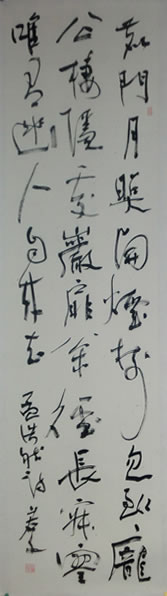 鹿門月照開煙樹忽到龐
公棲隱處巖扉松徑長寂寥
唯有幽人自來去 孟浩然詩